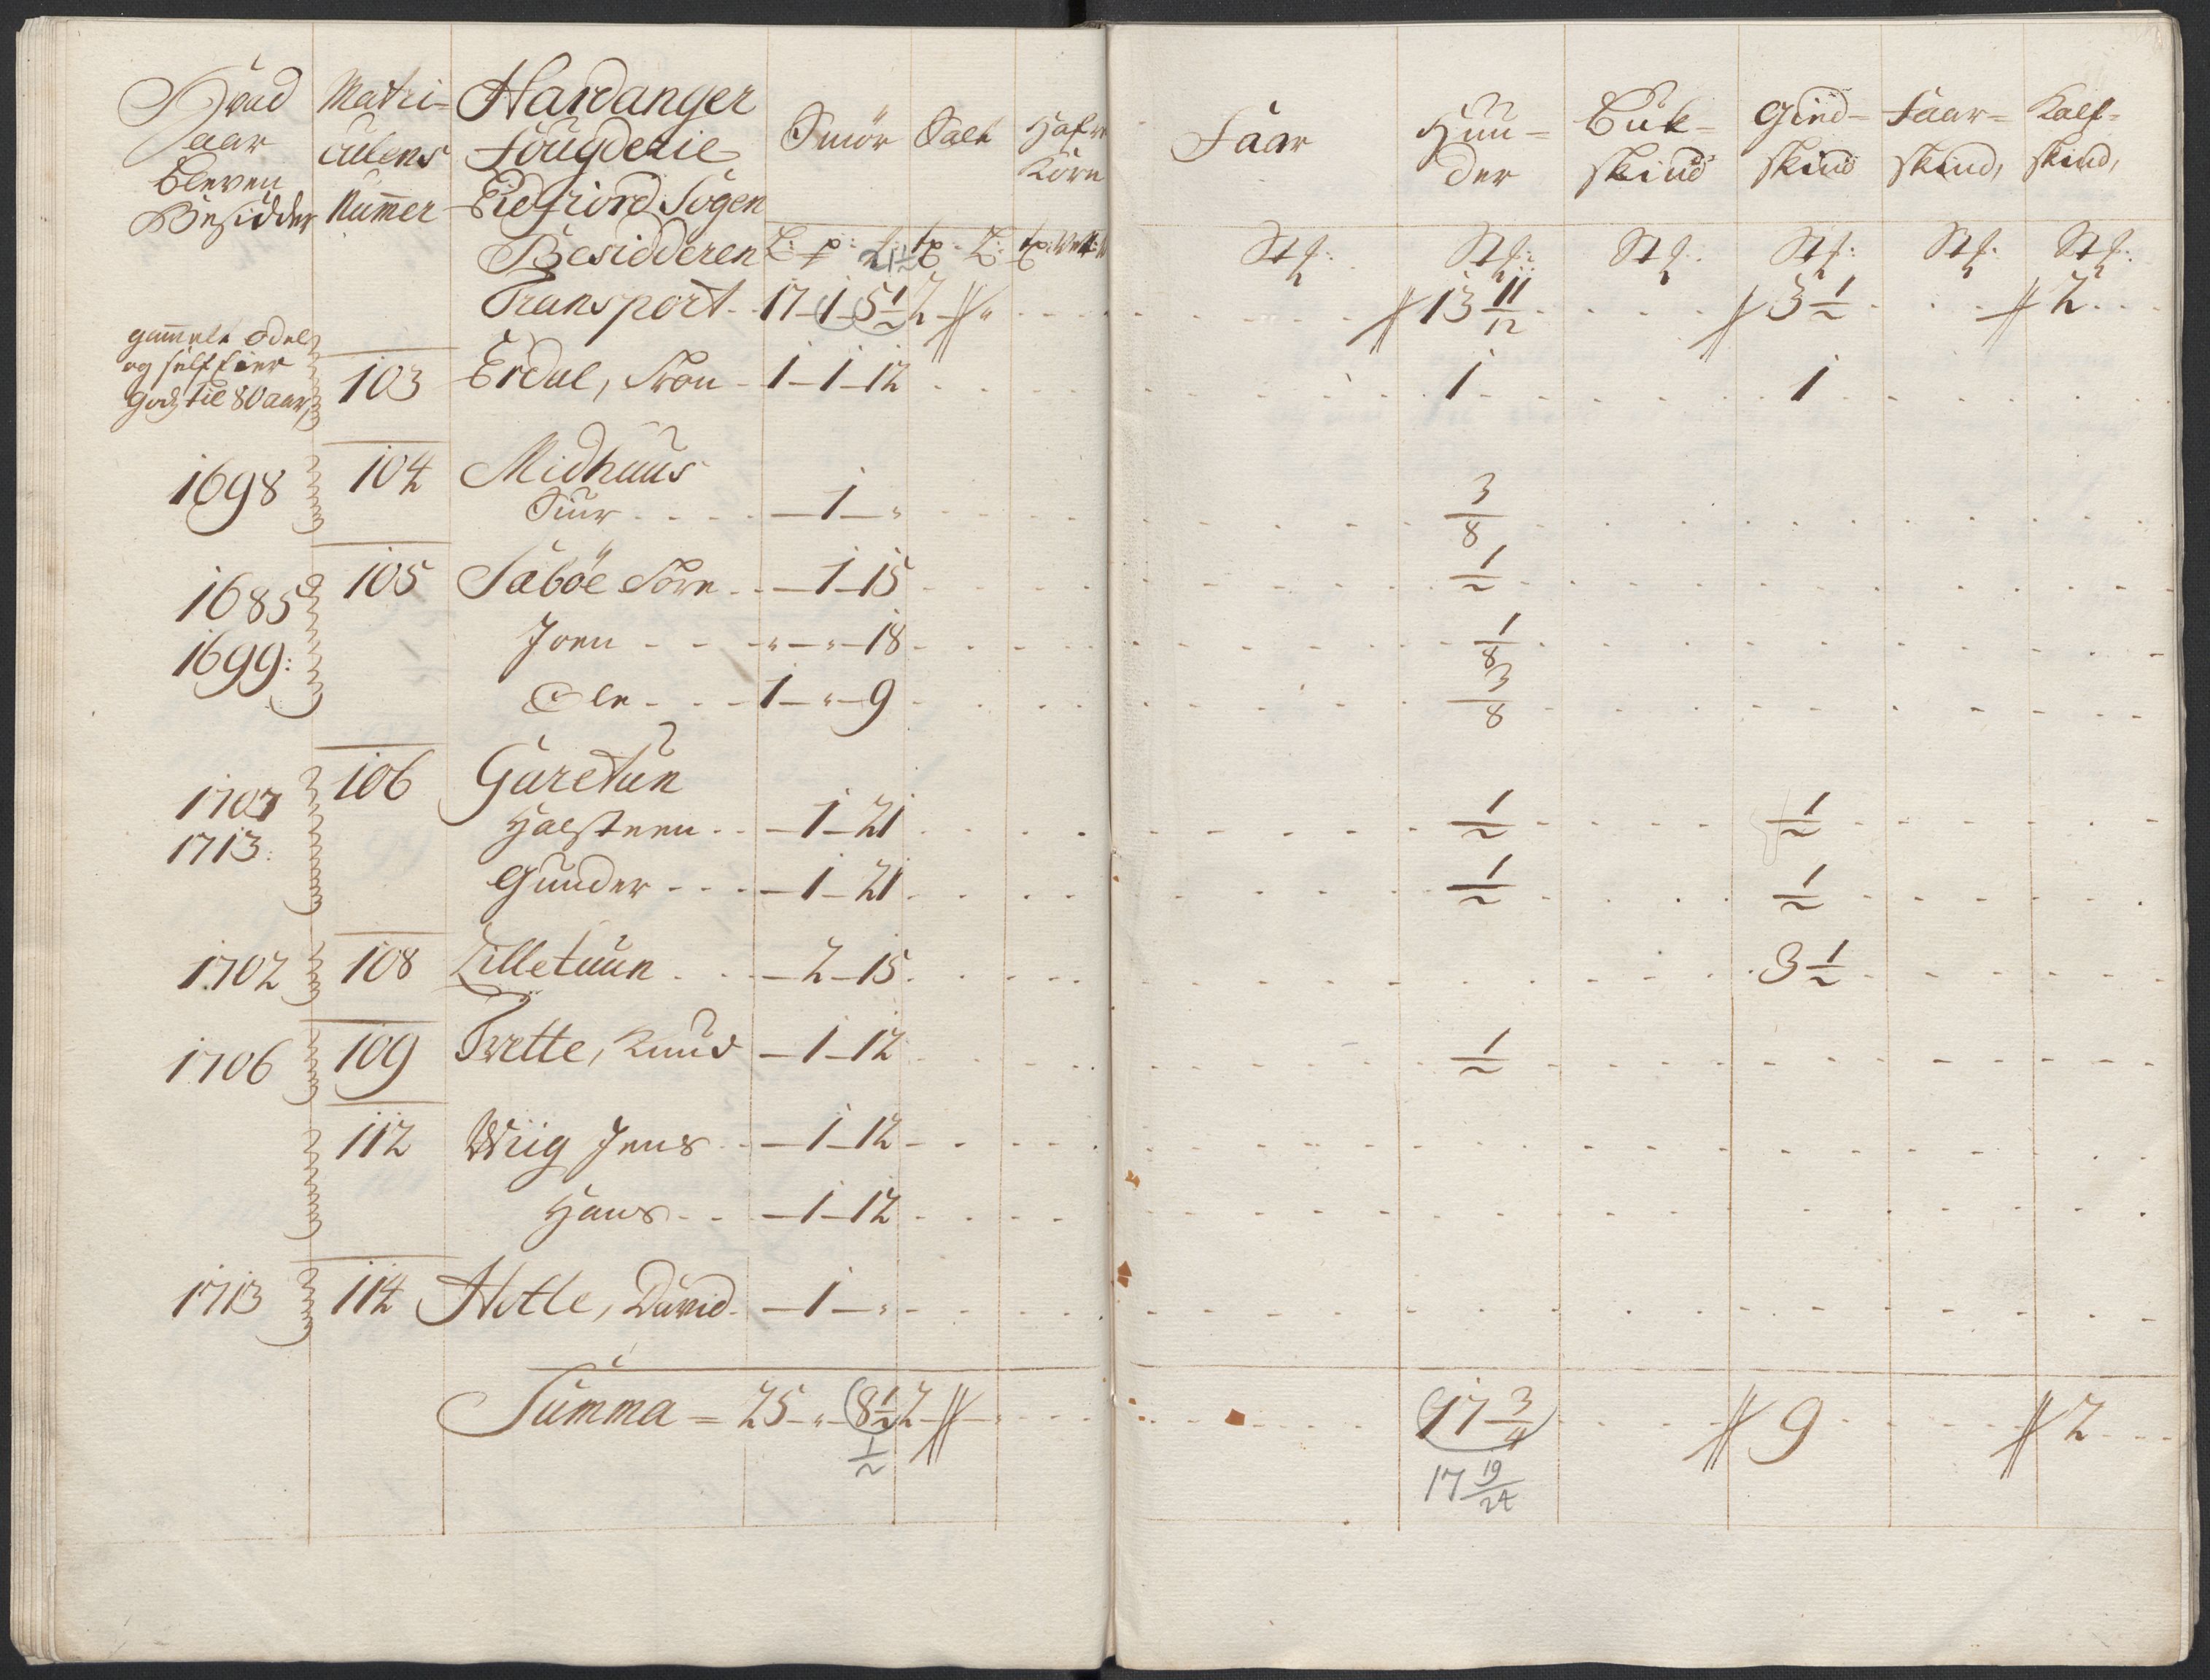 Hvad Aar Bleven Besidder | Matriculens Nummer | Hardanger Fougderie Eidfiord Sogen Besidderen | Smör | Salt | Hafre Korn | Faar | Huuder | Buk-skind | Gied-skind | Faar-skind, | Kalf-skind,
Transport - 17-1-5½ 2 13 11/12 3½ 2
gammelt odel
og selfeier
godz til 80 aar, 103 Erdal, Siön - 1-1-12 1 1
1698 104 Midhuus
Siur - - - -1-" 3/8
1685 105 Sæböe Sörn - -1-15 ½
1699: Joen - - "-"-18 1/8
Ole - - 1-"-9 3/8
1707 106 Garetun
1713: Halsteen - -1-21 ½ ½
Gunder - - -1-21 ½ ½
1702 108 Lilletuun - -2-15 3½
1706 109 Tvette, Knud -1-12 ½
112 Wiig Jens - -1-12
Hans - - -1-12
1713 114 Hotle, David - -1-"
Summa = 25-"-8½ 2 17 3/4 9 2
½ 17 19/24